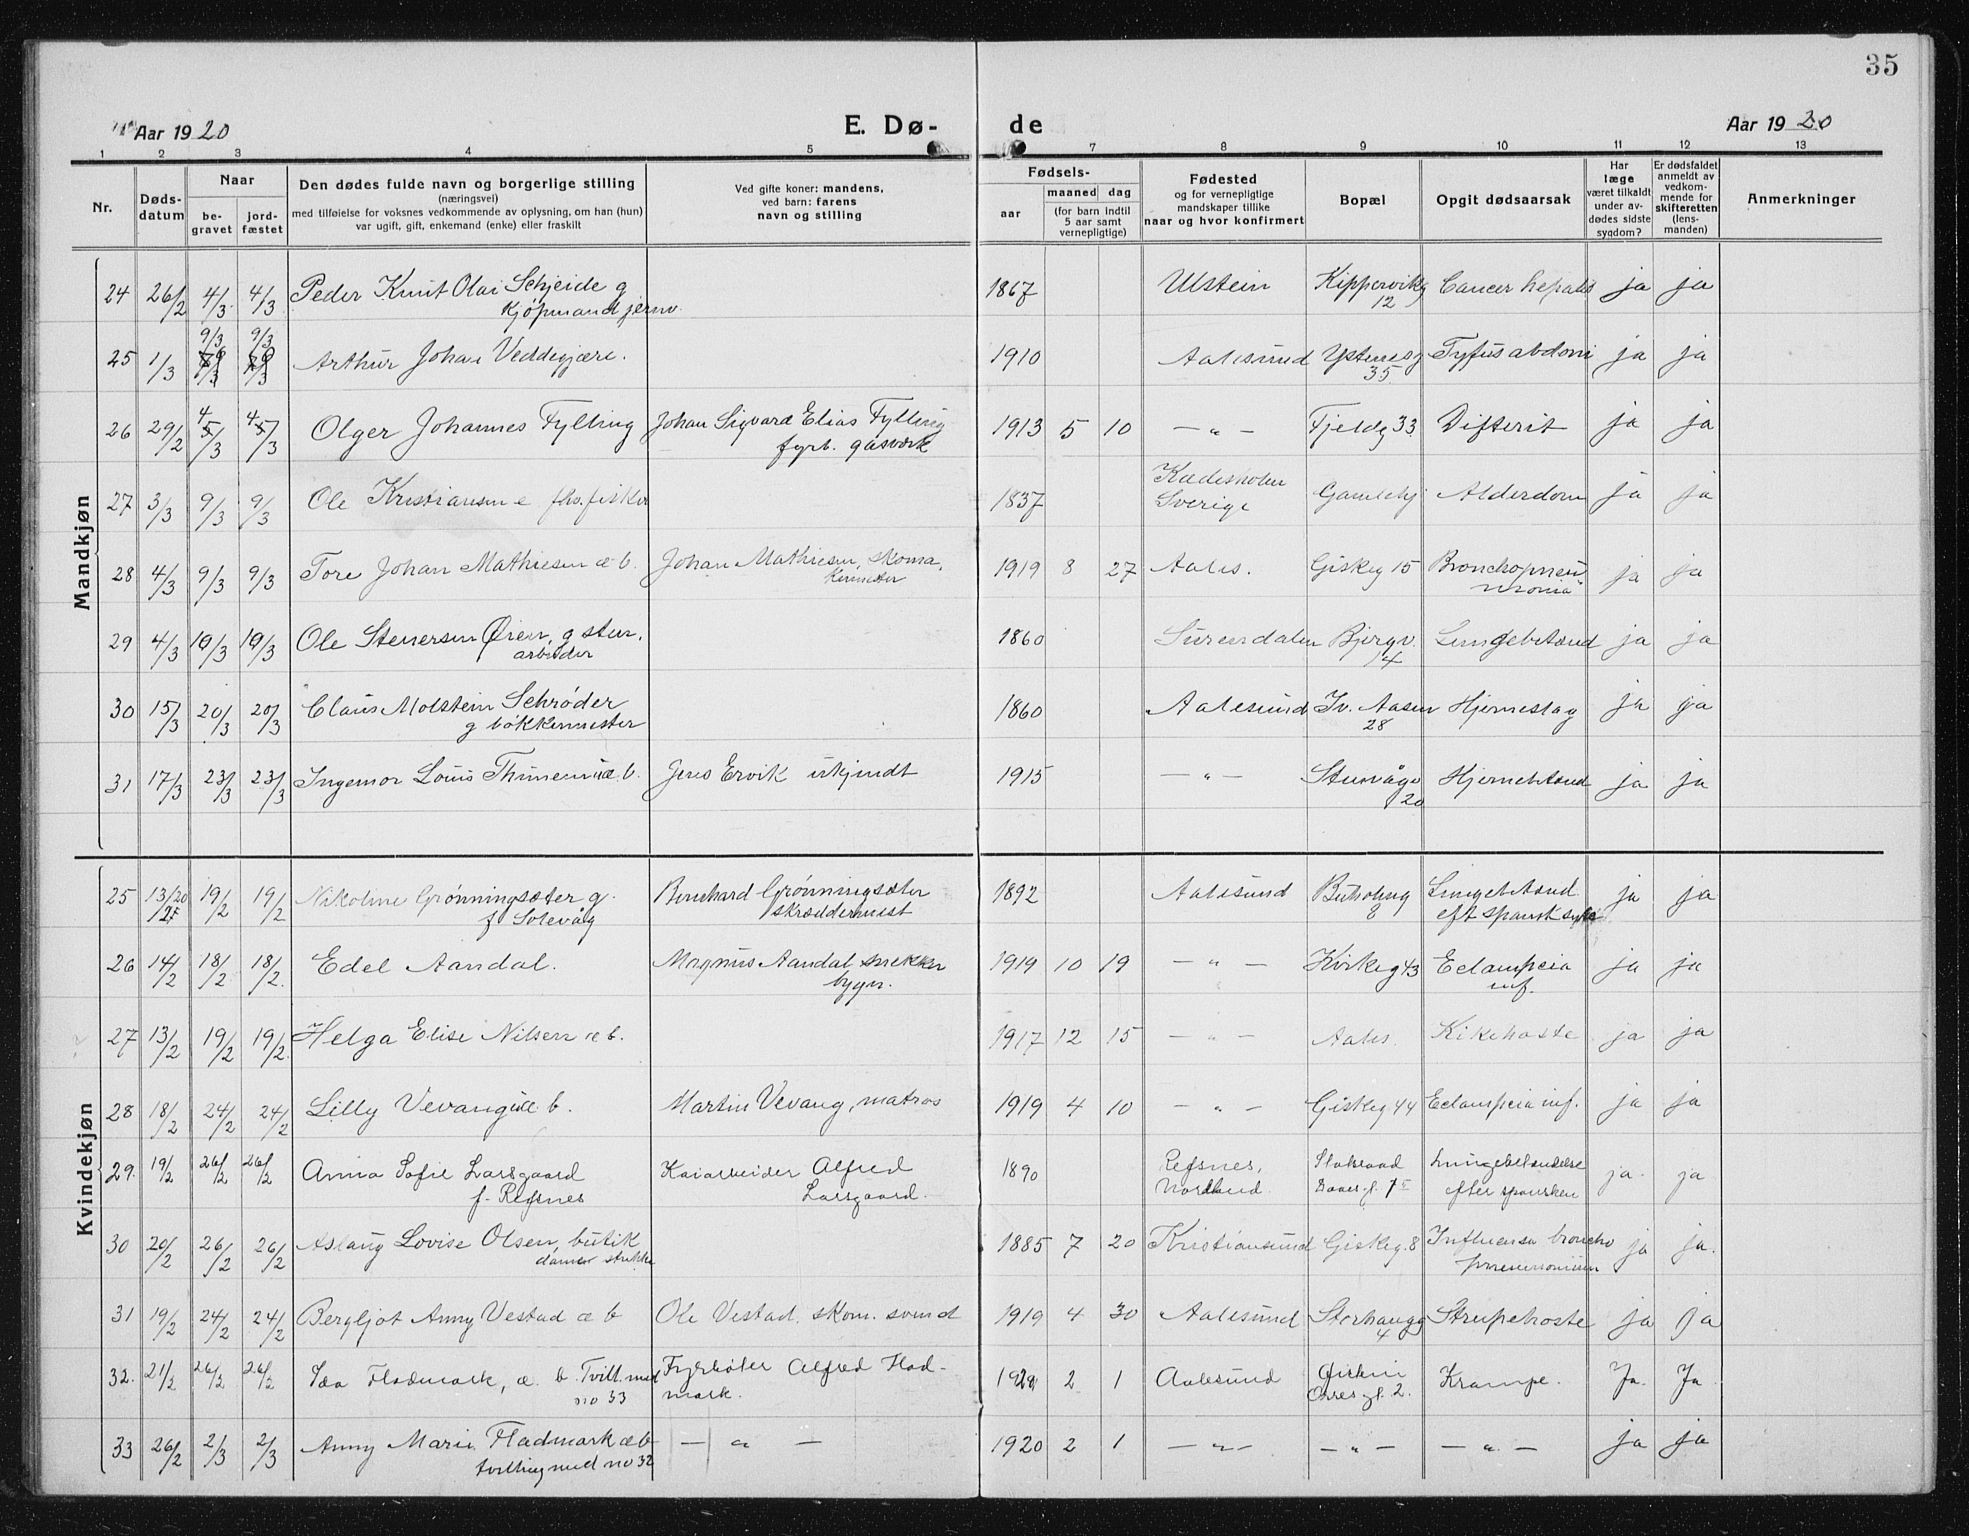 35
Aar 1920 E. Dø- de Aar 1920
1 2 3 4 5 7 8 9 10 11 12 13
Nr. Døds-datum Naar be-gravet jord-fæstet Den dødes fulde navn og borgerlige stilling (næringsvei) med tilføielse for voksnes vedkommende av oplysning, om han (hun) var ugift, gift, enkemand (enke) eller fraskilt Ved gifte koner: mandens, ved barn: farens navn og stilling Fødsels- aar maaned dag (for barn indtil 5 aar samt vernepligtige) Fødested og for vernepligtige mandskaper tillike naar og hvor konfirmert Bopæl Opgit dødsaarsak Har læge været tilkaldt under av-dødes sidste sygdom? Er dødsfaldet anmeldt av vedkom-mende for skifteretten (lens-manden) Anmerkninger
Mandkjøn
24 26/2 4/3 4/3 Peder Knut Olai Schjeide g 1867 Ulstein Kippervikg Cancer hepatis ja ja
Kjøpmand jernv. 12
9/3 9/3
25 1/3 Arthur Johan Veddegjære. 1910 Aalesund Ystenesg Tyfus abdomi ja ja
35
26 29/2 4/3 4/3 Olger Johannes Fylling Johan Sigvard Elias Fylling 1913 5 10 — " — Fjeldg 33 Difterit ja ja
fyrb. gasværk
27 3/3 9/3 9/3 Ole Kristiansen e fhv. fisker 1837 Sverige Gamlehj. Alderdom ja ja
28 4/3 9/3 9/3 Tore Johan Mathiesen æ b. Johan Mathiesen, skoma, 1919 8 27 Aales. Giskeg 15 Bronchopneu ja ja
kermester monia
29 4/3 10/3 10/3 Ole Stenersen Øien, g sten, 1860 Surendalen Bjergv. Lungebetænd ja ja
arbeider 14
30 15/3 20/3 20/3 Claus Molstein Schrøder 1860 Aalesund Iv. Aasen Hjerneslag ja ja
g bøkkermester 28
31 17/3 23/3 23/3 Ingemor Louis æ b. Jens Ervik ukjendt 1915 — " — Stenvågv Hjernebetænd ja ja
20
Kvindekjøn
25 13/20 19/2 19/2 Nikoline Grønningsæter g. Bernhard Grønningsæter 1892 Aalesund Lungebetænd ja ja
f Solevåg skræddermest 8 eft spansk syke
26 14/2 18/2 18/2 Edel Aandal. Magnus Aandal snekker 1919 10 19 — " — Kirkeg 43 Eclampcia ja ja
bygn. inf.
27 13/2 19/2 19/2 Helga Elise Nilsen æ b. 1917 12 15 — " — Aales. Kikehoste ja ja
28 18/2 24/2 24/2 Lilly Vevang uæ b. Martin Vevang, matros 1919 4 10 — " — Giskeg 44 Eclampcia inf. ja ja
29. 19/2 26/2 26/2 Anna Sofie Larsgaard Kaiarbeider Alfred 1890 Refsnes, Lungebetændelse ja. ja
f. Refsnes Larsgaard. Nordland. efter spansken
30 20/2 26/2 26/2 Aslaug Lovise Olsen, butik 1885 7 20 Kristiansund Giskeg. 8 Influensa broncho ja ja.
31 19/2 24/2 24/2 Bergljot Anny Vestad æ b Ole Vestad, skom. svend 1919 4 30 Aalesund Storhaugg Strupehoste ja ja
4
32. 21/2 26/2 26/2 Ida Fladmark, æ. b. Tvill. med Fyrbøter Alfred Flad- 1920 2 1 Aalesund Krampe. Ja. Ja.
no 33 mark. 2.
33 26/2 2/3 2/3 Anny Marie Fladmark æ b — " — 1920 2 1 — " — — " — — " — ja ja
tvilling med no 32